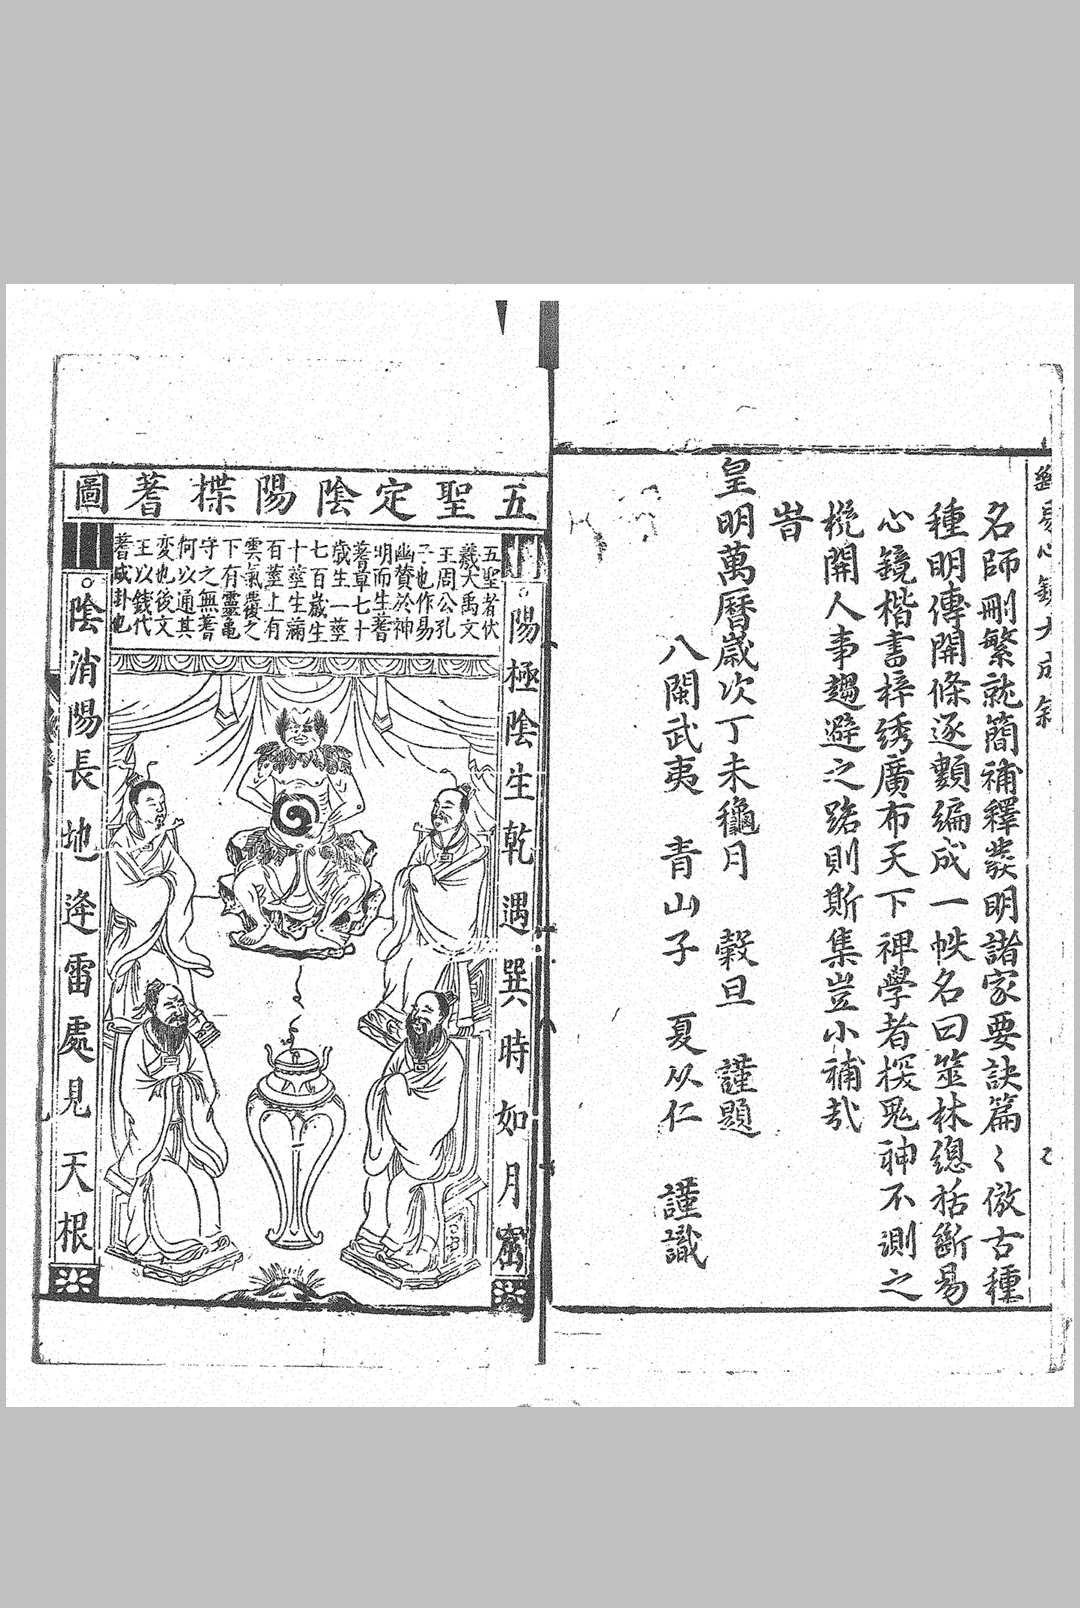 斷易心鏡大成叙
名師刪繁就簡補釋發明諸家要訣篇〻倣古種
種明傳開條逐類編成一帙名曰筮林總括斷易
心鏡楷書梓綉廣布天下禆學者探鬼神不測之
機開人事趨避之路則斯集豈小補哉
旹
皇明萬曆歲次丁未龝月 穀旦 謹題
八閩武夷 青山子 夏从仁 謹識
五聖定陰陽揲蓍圖
陽極陰生乾遇巽時如月窟
五聖者伏
羲大禹文
王周公孔
子也作易
幽贊於神
明而生蓍
蓍草七十
歲生一莖
七百歲生
十莖生滿
百莖上有
雲氣覆之
下有靈龜
守之無蓍
何以通其
变也後文
王以錢代
蓍成卦也
陰消陽長地逄雷處見天根